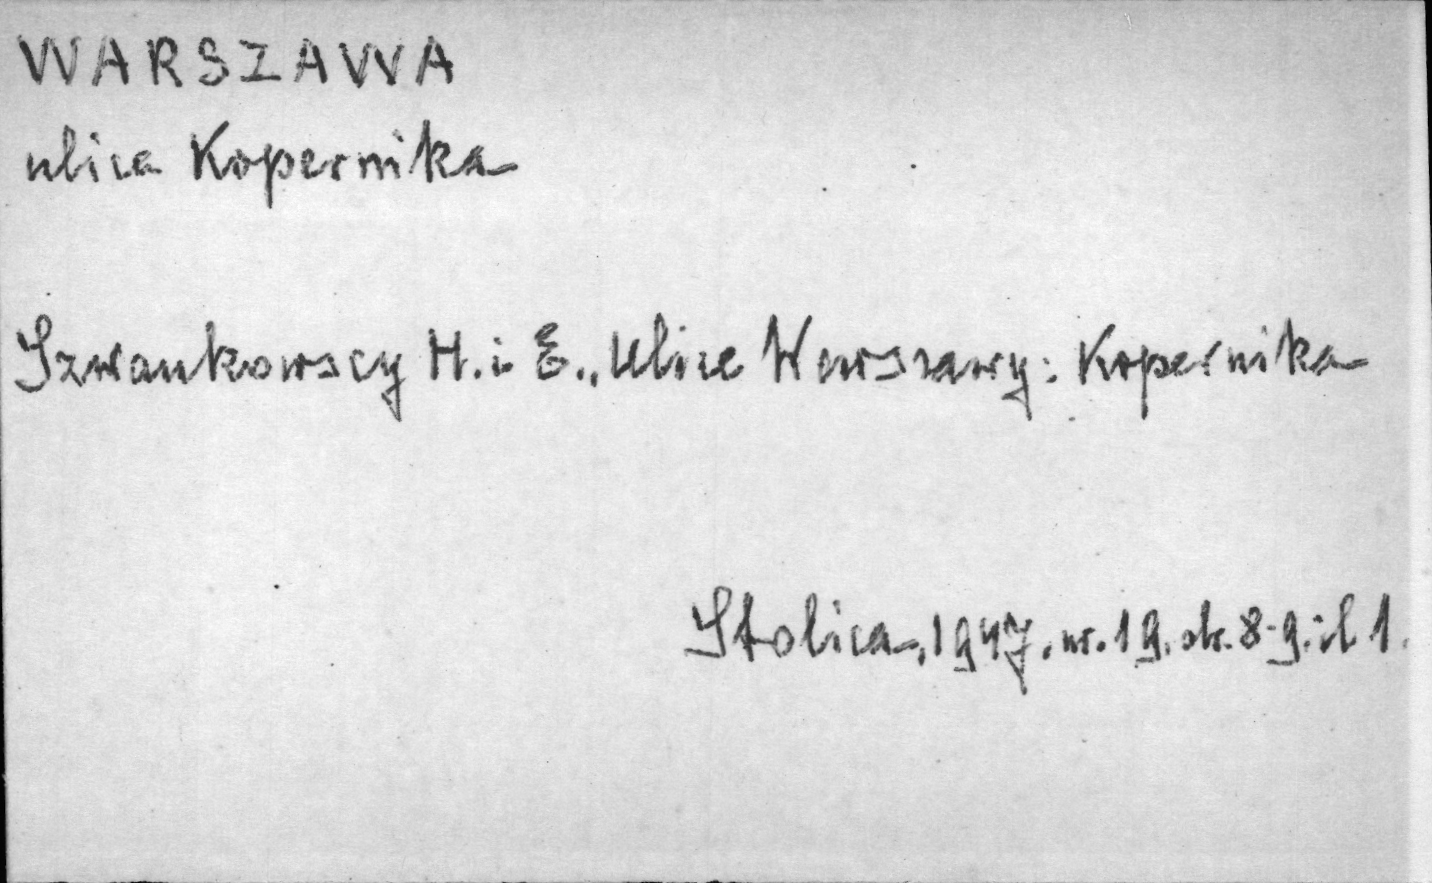 WARSZAWA
ulica Kopernika
Szwankowscy H. i E., Ulice Warszawy: Kopernika
Stolica, 1947, nr. 19, str. 8-9. il 1.